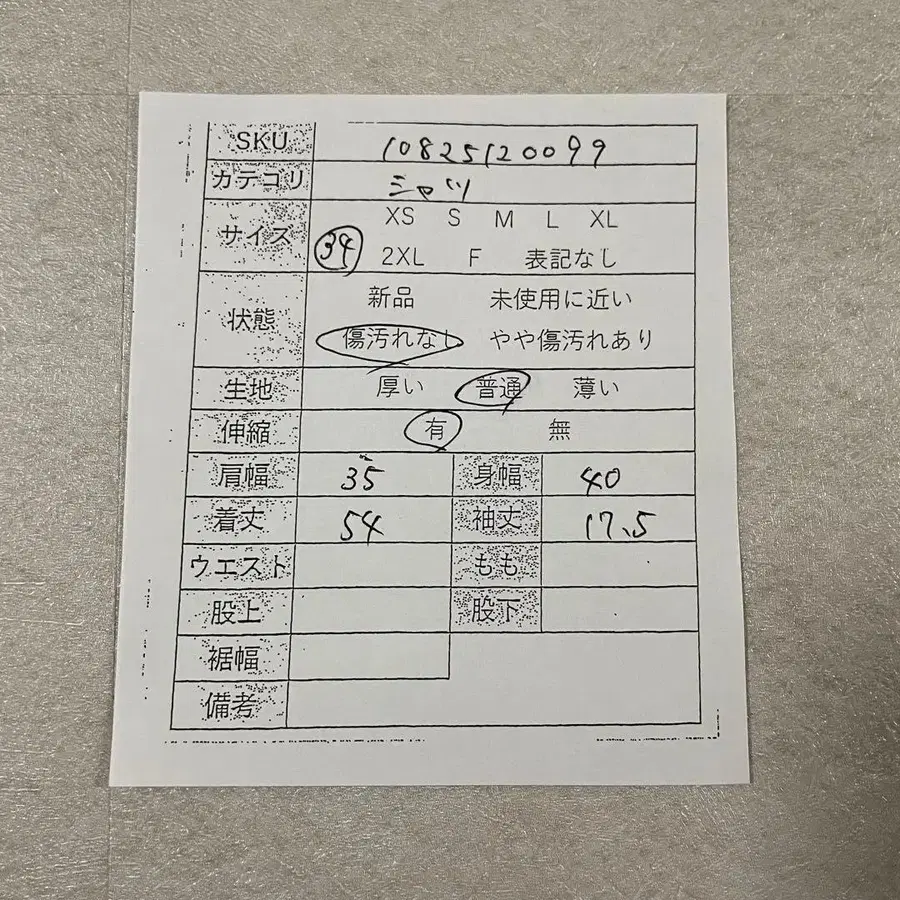 SKU 10825120099
カテゴリ シャツ
サイズ XS S M L XL
34 2XL F 表記なし
状態 新品 未使用に近い
傷汚れなし やや傷汚れあり
生地 厚い 普通 薄い
伸縮 有 無
肩幅 35 身幅 40
着丈 54 袖丈 17.5
ウエスト もも
股上 股下
裾幅
備考